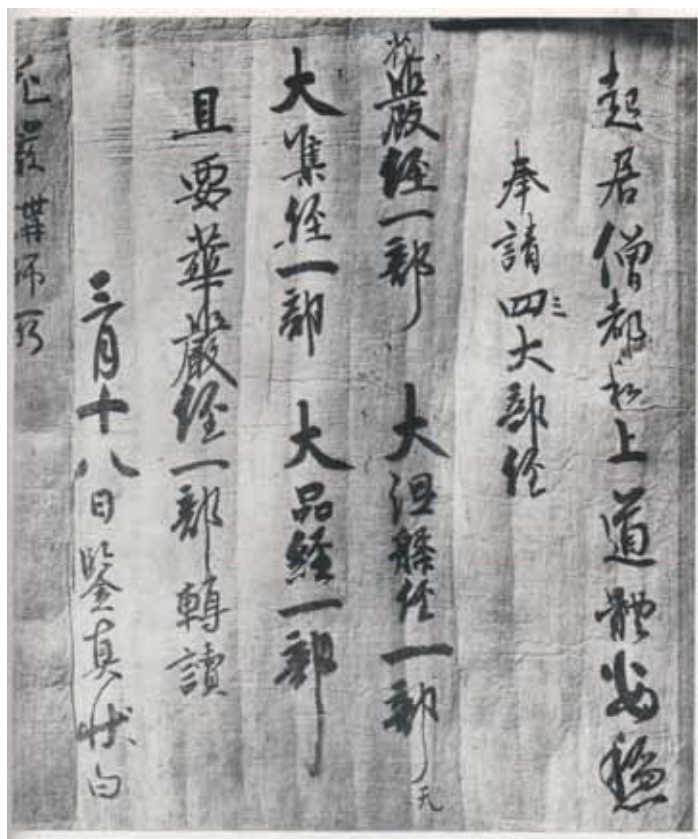 起居僧都和上道體安穩
奉請四三大部经
花嚴经一部 大涅槃经一部无
大集经一部 大品经一部
且要華嚴经一部轉讀
三月十八日鑒真状白
花嚴講師所